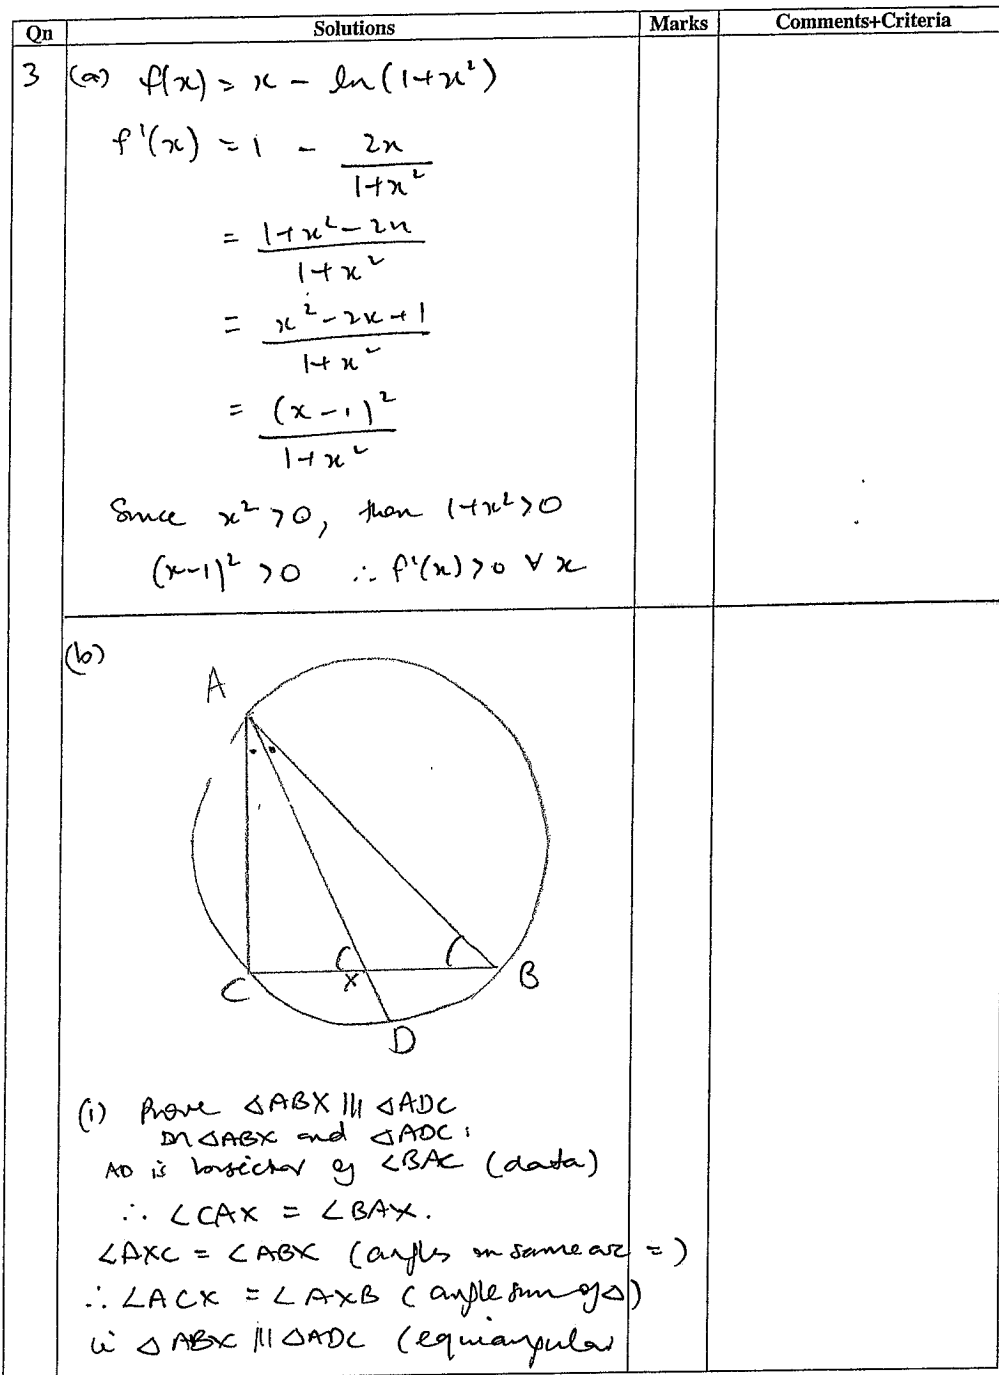 Qn Solutions Marks Comments+Criteria
3 (a) f(x) = x - ln(1+x²)
f'(x) = 1 - 2x/(1+x²)
= (1+x²-2x)/(1+x²)
= (x²-2x+1)/(1+x²)
= (x-1)²/(1+x²)
Since x²>0, then 1+x²>0
(x-1)²>0 ∴ f'(x)>0 ∀ x
(b)
A
C
X
B
D
(i) Prove △ABX ||| △ADC
In △ABX and △ADC:
AD is bisector of ∠BAC (data)
∴ ∠CAX = ∠BAX.
∠AXC = ∠ABX (angles on same arc =)
∴ ∠ACX = ∠AXB (angle sum of △)
ie △ABX ||| △ADC (equiangular